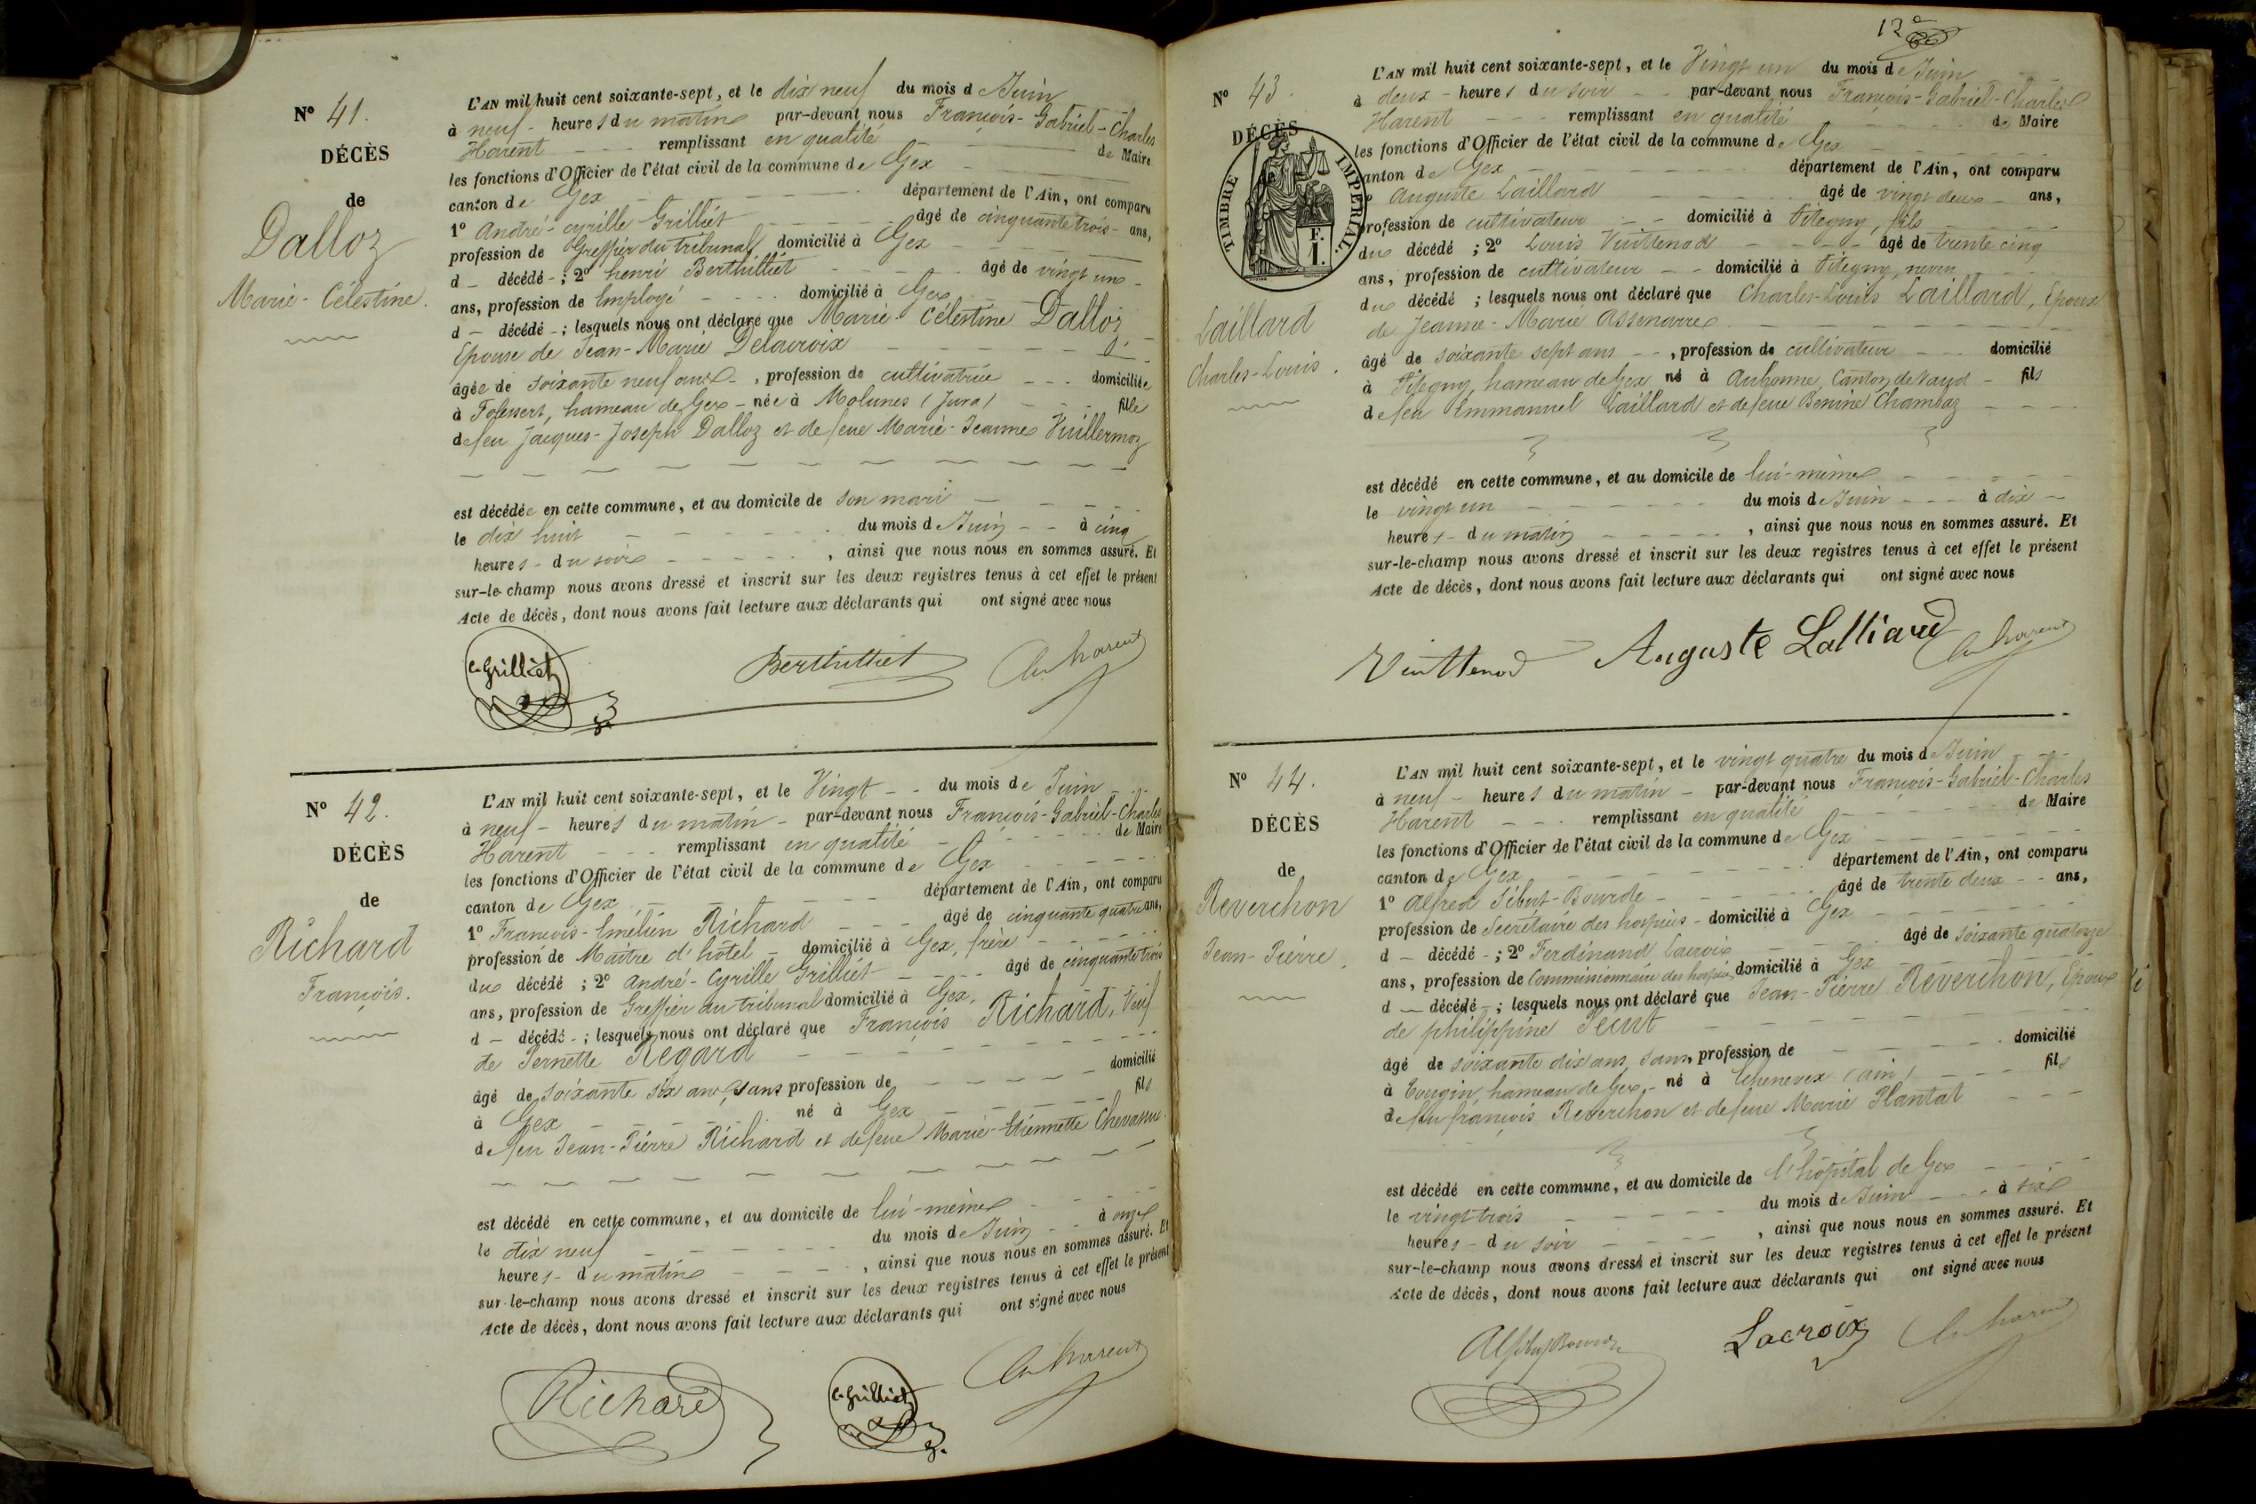 N° 41.
DÉCÈS
de
Dalloz
Marie-Célestine.
L'AN mil huit cent soixante-sept, et le dix neuf du mois de Juin
à neuf - heures du matin par-devant nous François-Gabriel-Charles
Harent - - - remplissant en qualité de Maire
les fonctions d'Officier de l'état civil de la commune de Gex
canton de Gex - département de l'Ain, ont comparu
1° André-Cyrille Grilliet - âgé de cinquante trois - ans,
profession de Greffier du tribunal domicilié à Gex
d - décédé - ; 2° henri Berthilliet - âgé de vingt un
ans, profession de Employé - domicilié à Gex
d - décédé - ; lesquels nous ont déclaré que Marie-Célestine Dalloz
Epouse de Jean-Marie Delacroix
âgée de soixante neuf ans - , profession de cultivatrice - - - domiciliée
à Tolevert, hameau de Gex - née à Molunes (Jura) fille
de feu Jacques-Joseph Dalloz et de feue Marie-Jeanne Vuillermoz
est décédée en cette commune, et au domicile de son mari
le dix huit du mois de Juin - - à cinq
heures - du soir , ainsi que nous nous en sommes assuré. Et
sur-le-champ nous avons dressé et inscrit sur les deux registres tenus à cet effet le présent
Acte de décès, dont nous avons fait lecture aux déclarants qui ont signé avec nous
C. Grilliet Berthilliet Ch. harent
N° 42.
DÉCÈS
de
Richard
François.
L'AN mil huit cent soixante-sept, et le Vingt - - du mois de Juin
à neuf - heures du matin - par-devant nous François-Gabriel-Charles
Harent - - - remplissant en qualité de Maire
les fonctions d'Officier de l'état civil de la commune de Gex
canton de Gex département de l'Ain, ont comparu
1° François-Emélien Richard âgé de cinquante quatre ans,
profession de Maître d'hôtel - domicilié à Gex, frère
du décédé ; 2° André-Cyrille Grilliet - âgé de cinquante trois
ans, profession de Greffier du tribunal domicilié à Gex.
d - décédé - ; lesquels nous ont déclaré que François Richard, Veuf
de Pernette Regard
âgé de soixante six ans, sans profession de domicilié
à Gex né à Gex fils
de feu Jean-Pierre Richard et de feue Marie-Etiennette Chevassu
est décédé en cette commune, et au domicile de lui-même
le dix neuf du mois de Juin - - à onze
heures - du matin , ainsi que nous nous en sommes assuré. Et
sur-le-champ nous avons dressé et inscrit sur les deux registres tenus à cet effet le présent
Acte de décès, dont nous avons fait lecture aux déclarants qui ont signé avec nous
Richard C. Grilliet Ch. harent
12e
N° 43.
DÉCÈS
TIMBRE IMPÉRIAL.
Laillard
Charles-Louis.
L'AN mil huit cent soixante-sept, et le Vingt un du mois de Juin
à deux - heures du soir - - par-devant nous François-Gabriel-Charles
Harent - - - remplissant en qualité de Maire
les fonctions d'Officier de l'état civil de la commune de Gex
canton de Gex département de l'Ain, ont comparu
Auguste Laillard âgé de vingt deux - ans,
profession de cultivateur - - domicilié à Pitegny, fils
du décédé ; 2° Louis Vuittenod âgé de trente cinq
ans, profession de cultivateur - - domicilié à Pitegny, neveu
du décédé ; lesquels nous ont déclaré que Charles-Louis Laillard, Epoux
de Jeanne-Marie
âgé de soixante sept ans - - , profession de cultivateur domicilié
à Pitegny, hameau de Gex né à Aubonne, Canton de Vaud - fils
de feu Emmanuel Laillard et de feue Benine Chambaz
est décédé en cette commune, et au domicile de lui-même
le vingt un du mois de Juin - - - à dix -
heures - du matin , ainsi que nous nous en sommes assuré. Et
sur-le-champ nous avons dressé et inscrit sur les deux registres tenus à cet effet le présent
Acte de décès, dont nous avons fait lecture aux déclarants qui ont signé avec nous
Vuittenod Auguste Lalliard Ch. harent
N° 44.
DÉCÈS
de
Reverchon
Jean-Pierre.
L'AN mil huit cent soixante-sept, et le vingt quatre du mois de Juin
à neuf - heures du matin - par-devant nous François-Gabriel-Charles
Harent - - - remplissant en qualité de Maire
les fonctions d'Officier de l'état civil de la commune de Gex
canton de Gex département de l'Ain, ont comparu
1° Alfred âgé de trente deux - - ans,
profession de Secrétaire des hospices - domicilié à Gex
d - décédé - ; 2° Ferdinand Lacroix âgé de soixante quatorze
ans, profession de Commissionnaire des hospices domicilié à Gex
d - décédé - ; lesquels nous ont déclaré que Jean-Pierre Reverchon, Epoux
de philippine
âgé de soixante dix ans, sans profession de domicilié
à Tougin, hameau de Gex, - né à Chenevex (ain) fils
de feu françois Reverchon et de feue Marie Plantat
est décédé en cette commune, et au domicile de l'hôpital de Gex
le vingt trois du mois de Juin à six
heures - du soir , ainsi que nous nous en sommes assuré. Et
sur-le-champ nous avons dressé et inscrit sur les deux registres tenus à cet effet le présent
Acte de décès, dont nous avons fait lecture aux déclarants qui ont signé avec nous
Lacroix Ch. harent